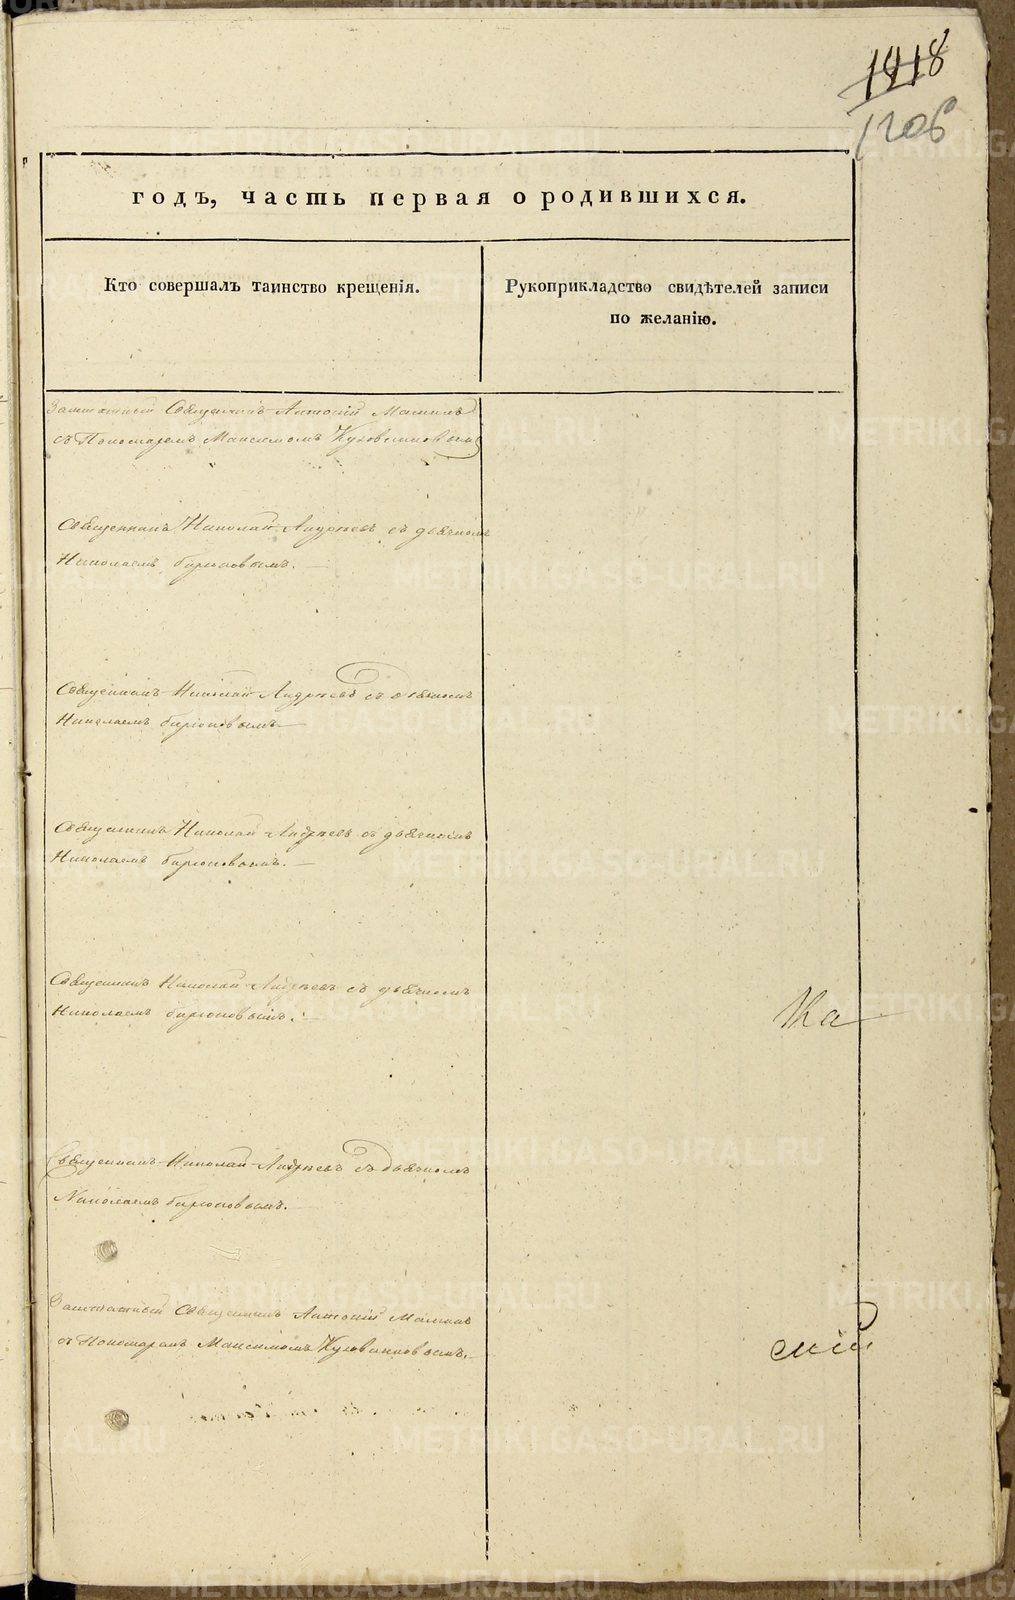 1418
1206
годъ, часть первая о родившихся.
Кто совершалъ таинство крещенія.
Рукоприкладство свидѣтелей записи
по желанію.
Заштатный Священникъ Антоній
съ Пономаремъ Максимомъ
Священникъ Николай Андреевъ съ дьячкомъ
Николаемъ Бирюковымъ.
Священникъ Николай Андреевъ съ дьячкомъ
Николаемъ Бирюковымъ
Священникъ Николай Андреевъ съ дьячкомъ
Николаемъ Бирюковымъ.
Священникъ Николай Андреевъ съ дьячкомъ
Николаемъ Бирюковымъ.
Священникъ Николай Андреевъ съ дьячкомъ
Николаемъ Бирюковымъ.
Заштатный Священникъ Антоній
съ Пономаремъ Максимомъ
скій
METRIKI.GASO-URAL.RU